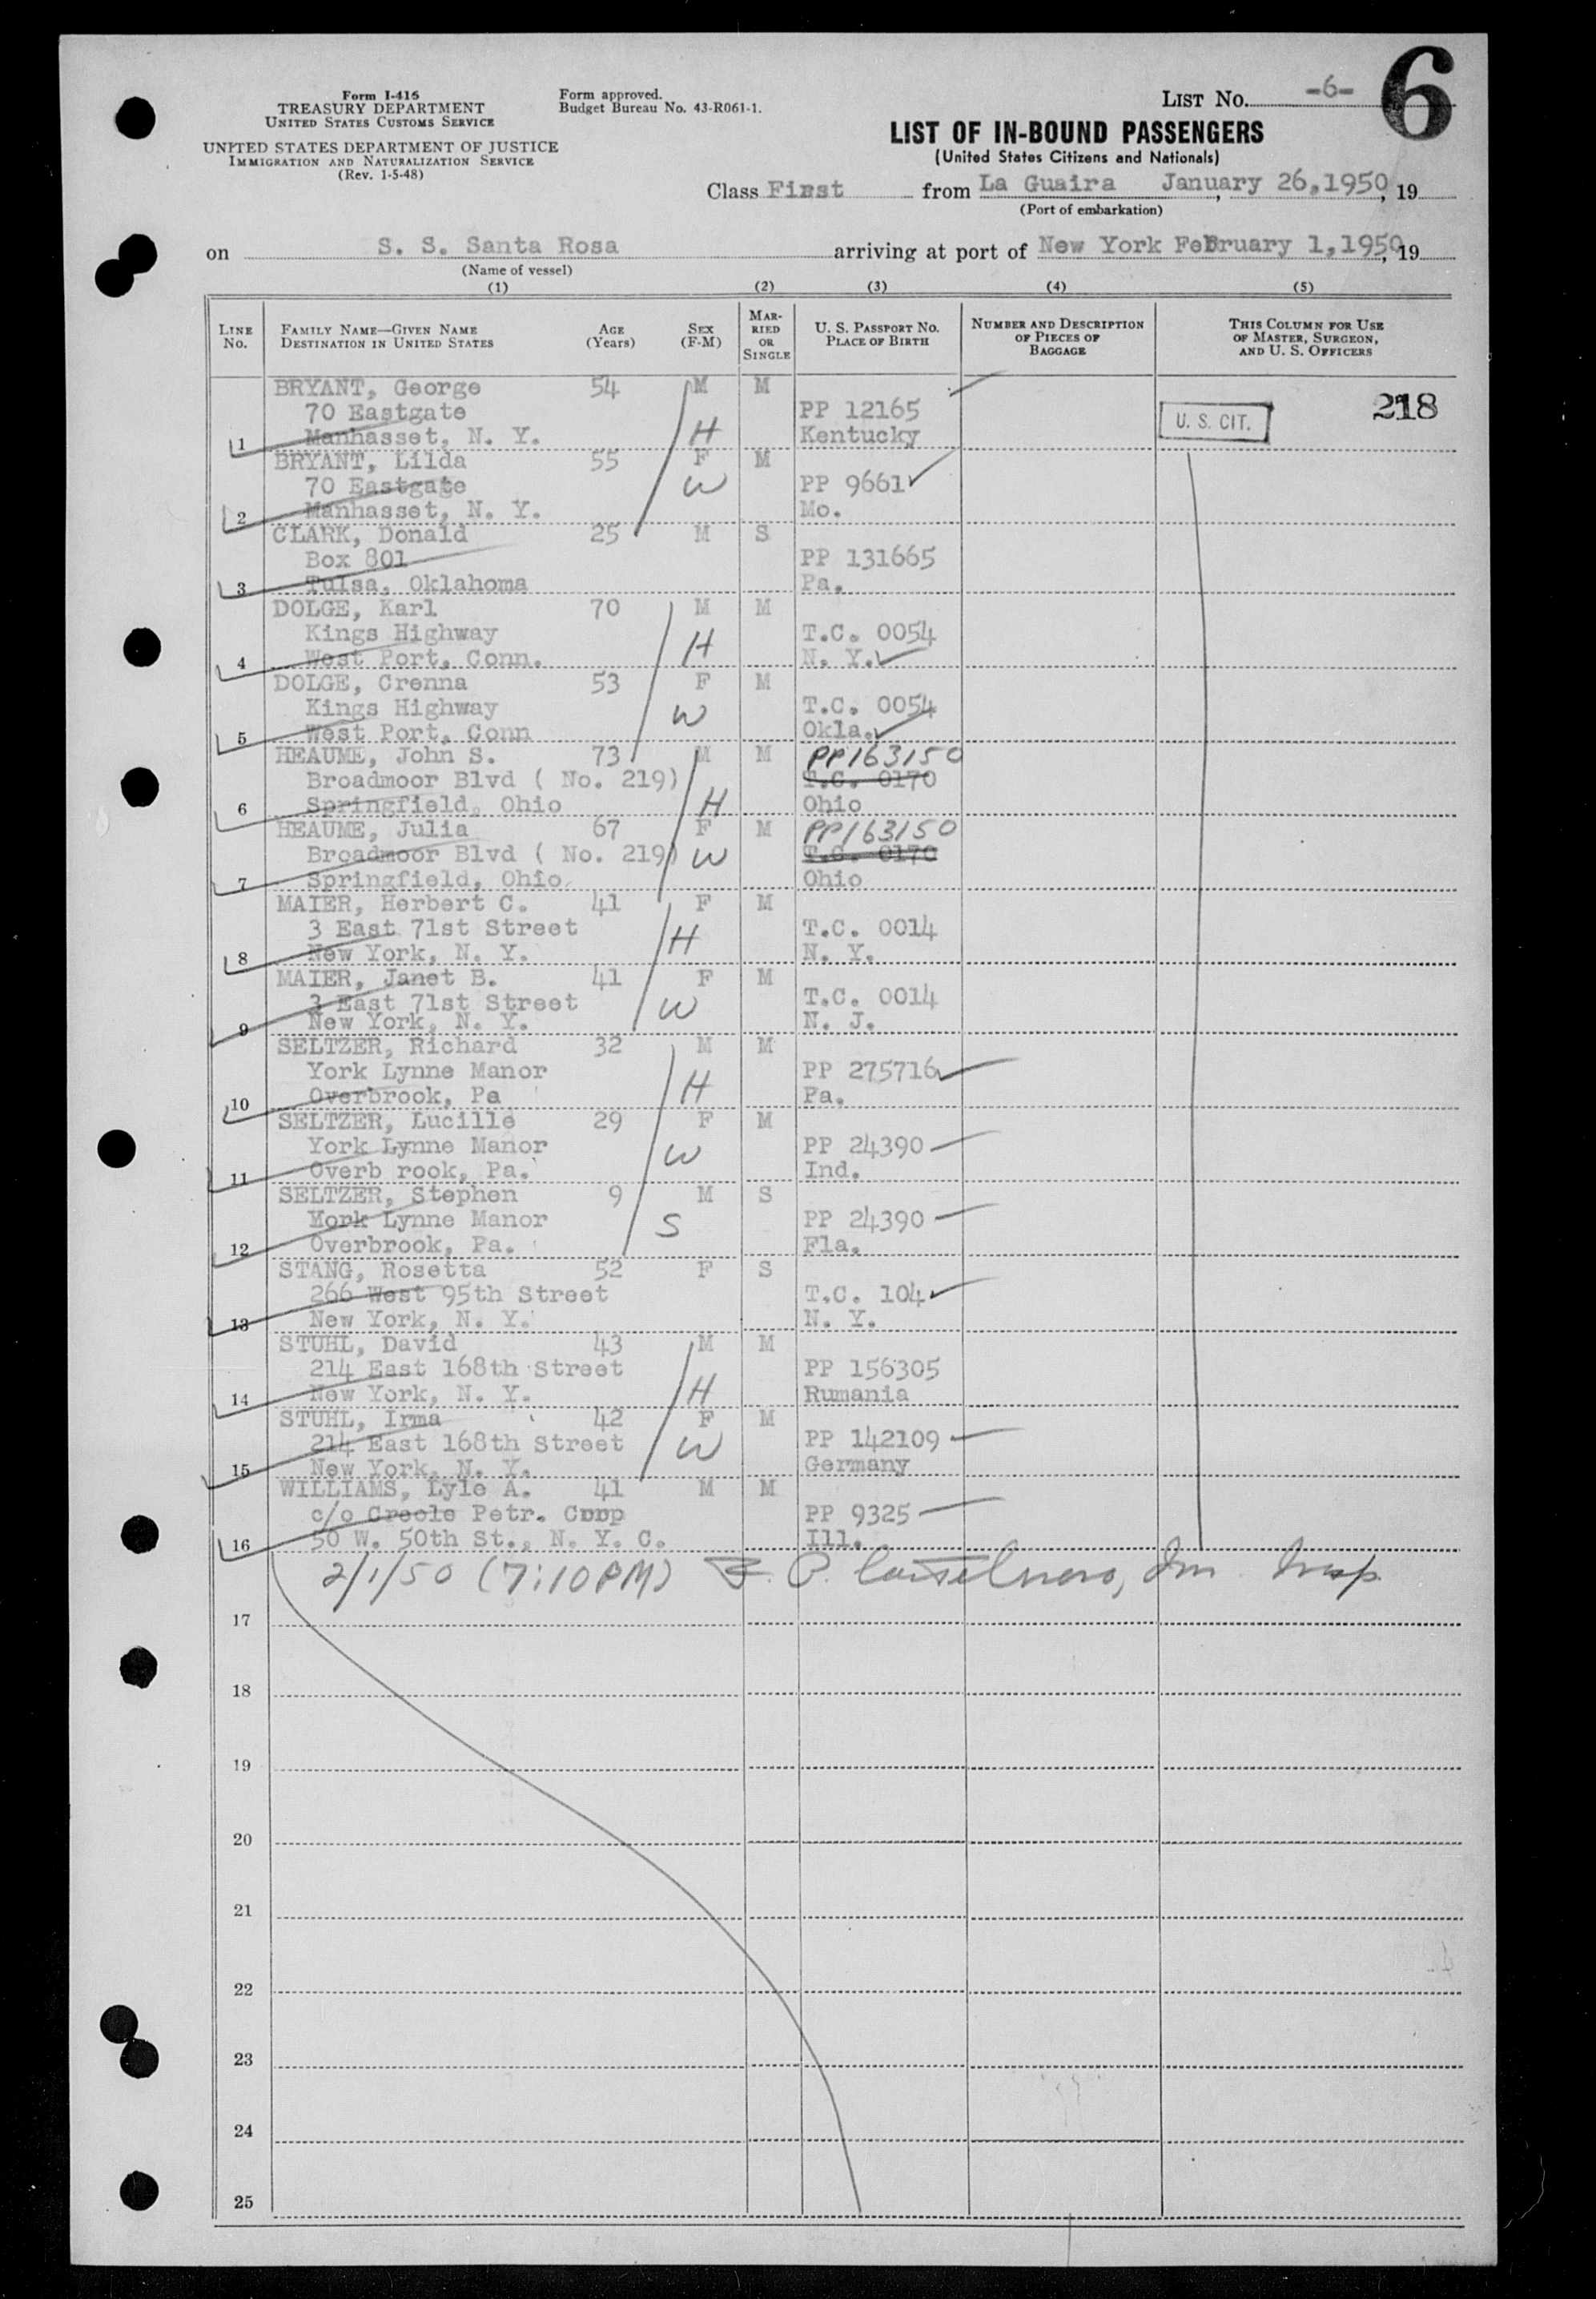 Form I-416
TREASURY DEPARTMENT
UNITED STATES CUSTOMS SERVICE
UNITED STATES DEPARTMENT OF JUSTICE
IMMIGRATION AND NATURALIZATION SERVICE
(Rev. 1-5-48)
Form approved.
Budget Bureau No. 43-R061-1.
LIST NO. -6- 6
LIST OF IN-BOUND PASSENGERS
(United States Citizens and Nationals)
Class First from La Guaira, January 26,1950, 19
(Port of embarkation)
on S. S. Santa Rosa arriving at port of New York February 1,1950, 19
(Name of vessel)
(1) (2) (3) (4) (5)
LINE NO. FAMILY NAME—GIVEN NAME DESTINATION IN UNITED STATES AGE (Years) SEX (F-M) MARRIED OR SINGLE U. S. PASSPORT NO. PLACE OF BIRTH NUMBER AND DESCRIPTION OF PIECES OF BAGGAGE THIS COLUMN FOR USE OF MASTER, SURGEON, AND U. S. OFFICERS
BRYANT, George 54 M M
70 Eastgate PP 12165 U. S. CIT. 218
1 Manhasset, N. Y. H Kentucky
BRYANT, Lilda 55 F M
70 Eastgate W PP 9661
2 Manhasset, N. Y. Mo.
CLARK, Donald 25 M S
Box 801 PP 131665
3 Tulsa, Oklahoma Pa.
DOLGE, Karl 70 M M
Kings Highway H T.C. 0054
4 West Port, Conn. N. Y.
DOLGE, Crenna 53 F M
Kings Highway W T.C. 0054
5 West Port, Conn Okla.
HEAUME, John S. 73 M M PP163150
Broadmoor Blvd ( No. 219) T.C. 0170
6 Springfield, Ohio H Ohio
HEAUME, Julia 67 F M PP163150
Broadmoor Blvd ( No. 219) W T.C. 0170
7 Springfield, Ohio Ohio
MAIER, Herbert C. 41 F M
3 East 71st Street H T.C. 0014
8 New York, N. Y. N. Y.
MAIER, Janet B. 41 F M
3 East 71st Street W T.C. 0014
9 New York, N. Y. N. J.
SELTZER, Richard 32 M M
York Lynne Manor H PP 275716
10 Overbrook, Pa Pa.
SELTZER, Lucille 29 F M
York Lynne Manor W PP 24390
11 Overb rook, Pa. Ind.
SELTZER, Stephen 9 M S
York Lynne Manor S PP 24390
12 Overbrook, Pa. Fla.
STANG, Rosetta 52 F S
266 West 95th Street T.C. 104
13 New York, N. Y. N. Y.
STUHL, David 43 M M
214 East 168th Street PP 156305
14 New York, N. Y. H Rumania
STUHL, Irma 42 F M
214 East 168th Street W PP 142109
15 New York, N. Y. Germany
WILLIAMS, Lyle A. 41 M M
c/o Creole Petr. Corp PP 9325
16 50 W. 50th St., N. Y. C. Ill.
2/1/50 (7:10PM) P. Imm Insp.
17
18
19
20
21
22
23
24
25